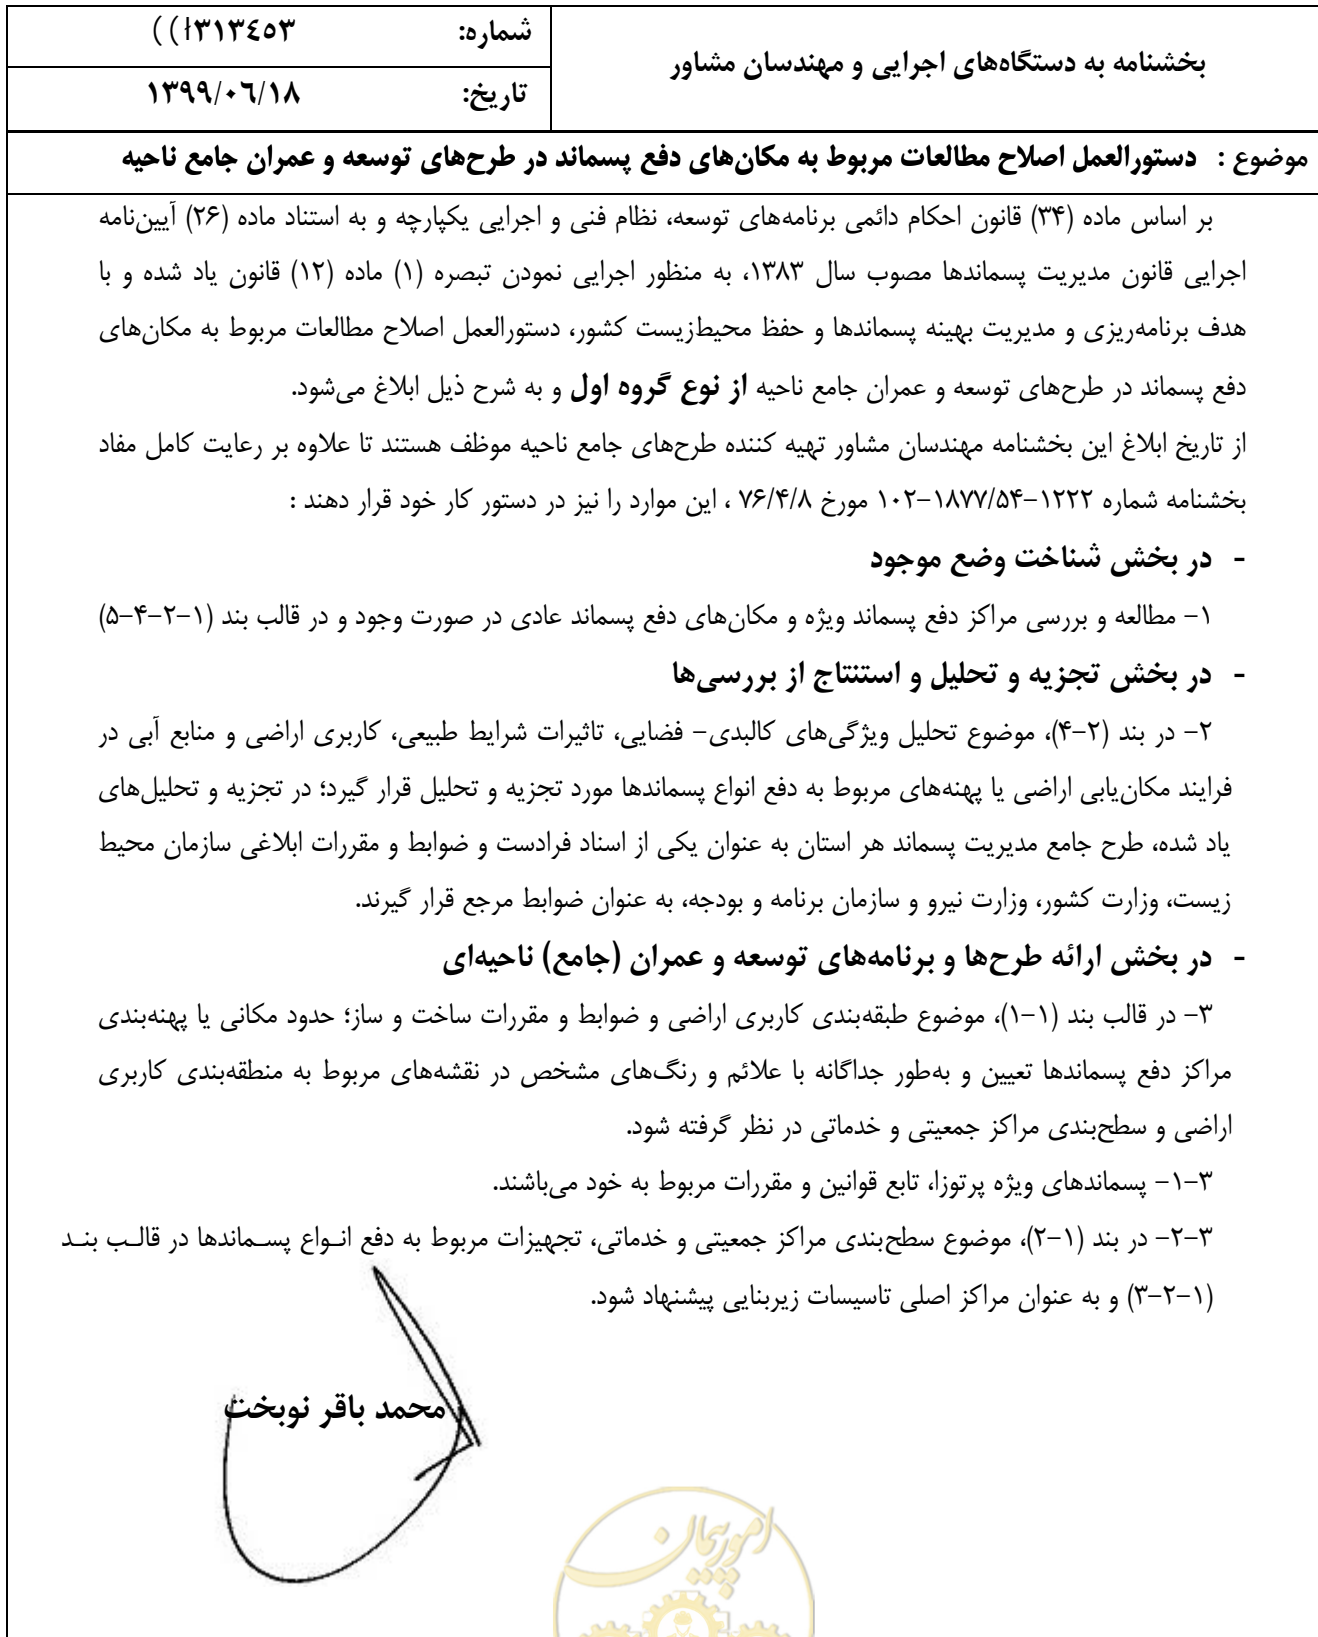 بخشنامه به دستگاه‌های اجرایی و مهندسان مشاور
شماره: ۳۱۳٤٥۳
تاریخ: ۱۳۹۹/۰٦/۱۸
موضوع : دستورالعمل اصلاح مطالعات مربوط به مکان‌های دفع پسماند در طرح‌های توسعه و عمران جامع ناحیه
بر اساس ماده (۳۴) قانون احکام دائمی برنامه‌های توسعه، نظام فنی و اجرایی یکپارچه و به استناد ماده (۲۶) آیین‌نامه
اجرایی قانون مدیریت پسماندها مصوب سال ۱۳۸۳، به منظور اجرایی نمودن تبصره (۱) ماده (۱۲) قانون یاد شده و با
هدف برنامه‌ریزی و مدیریت بهینه پسماندها و حفظ محیط‌زیست کشور، دستورالعمل اصلاح مطالعات مربوط به مکان‌های
دفع پسماند در طرح‌های توسعه و عمران جامع ناحیه از نوع گروه اول و به شرح ذیل ابلاغ می‌شود.
از تاریخ ابلاغ این بخشنامه مهندسان مشاور تهیه کننده طرح‌های جامع ناحیه موظف هستند تا علاوه بر رعایت کامل مفاد
بخشنامه شماره ۱۲۲۲-۱۸۷۷/۵۴-۱۰۲ مورخ ۷۶/۴/۸ ، این موارد را نیز در دستور کار خود قرار دهند :
- در بخش شناخت وضع موجود
۱- مطالعه و بررسی مراکز دفع پسماند ویژه و مکان‌های دفع پسماند عادی در صورت وجود و در قالب بند (۱-۲-۴-۵)
- در بخش تجزیه و تحلیل و استنتاج از بررسی‌ها
۲- در بند (۲-۴)، موضوع تحلیل ویژگی‌های کالبدی- فضایی، تاثیرات شرایط طبیعی، کاربری اراضی و منابع آبی در
فرایند مکان‌یابی اراضی یا پهنه‌های مربوط به دفع انواع پسماندها مورد تجزیه و تحلیل قرار گیرد؛ در تجزیه و تحلیل‌های
یاد شده، طرح جامع مدیریت پسماند هر استان به عنوان یکی از اسناد فرادست و ضوابط و مقررات ابلاغی سازمان محیط
زیست، وزارت کشور، وزارت نیرو و سازمان برنامه و بودجه، به عنوان ضوابط مرجع قرار گیرند.
- در بخش ارائه طرح‌ها و برنامه‌های توسعه و عمران (جامع) ناحیه‌ای
۳- در قالب بند (۱-۱)، موضوع طبقه‌بندی کاربری اراضی و ضوابط و مقررات ساخت و ساز؛ حدود مکانی یا پهنه‌بندی
مراکز دفع پسماندها تعیین و به‌طور جداگانه با علائم و رنگ‌های مشخص در نقشه‌های مربوط به منطقه‌بندی کاربری
اراضی و سطح‌بندی مراکز جمعیتی و خدماتی در نظر گرفته شود.
۳-۱- پسماندهای ویژه پرتوزا، تابع قوانین و مقررات مربوط به خود می‌باشند.
۳-۲- در بند (۱-۲)، موضوع سطح‌بندی مراکز جمعیتی و خدماتی، تجهیزات مربوط به دفع انـواع پسـماندها در قالـب بنـد
(۱-۲-۳) و به عنوان مراکز اصلی تاسیسات زیربنایی پیشنهاد شود.
محمد باقر نوبخت
امور پیمان